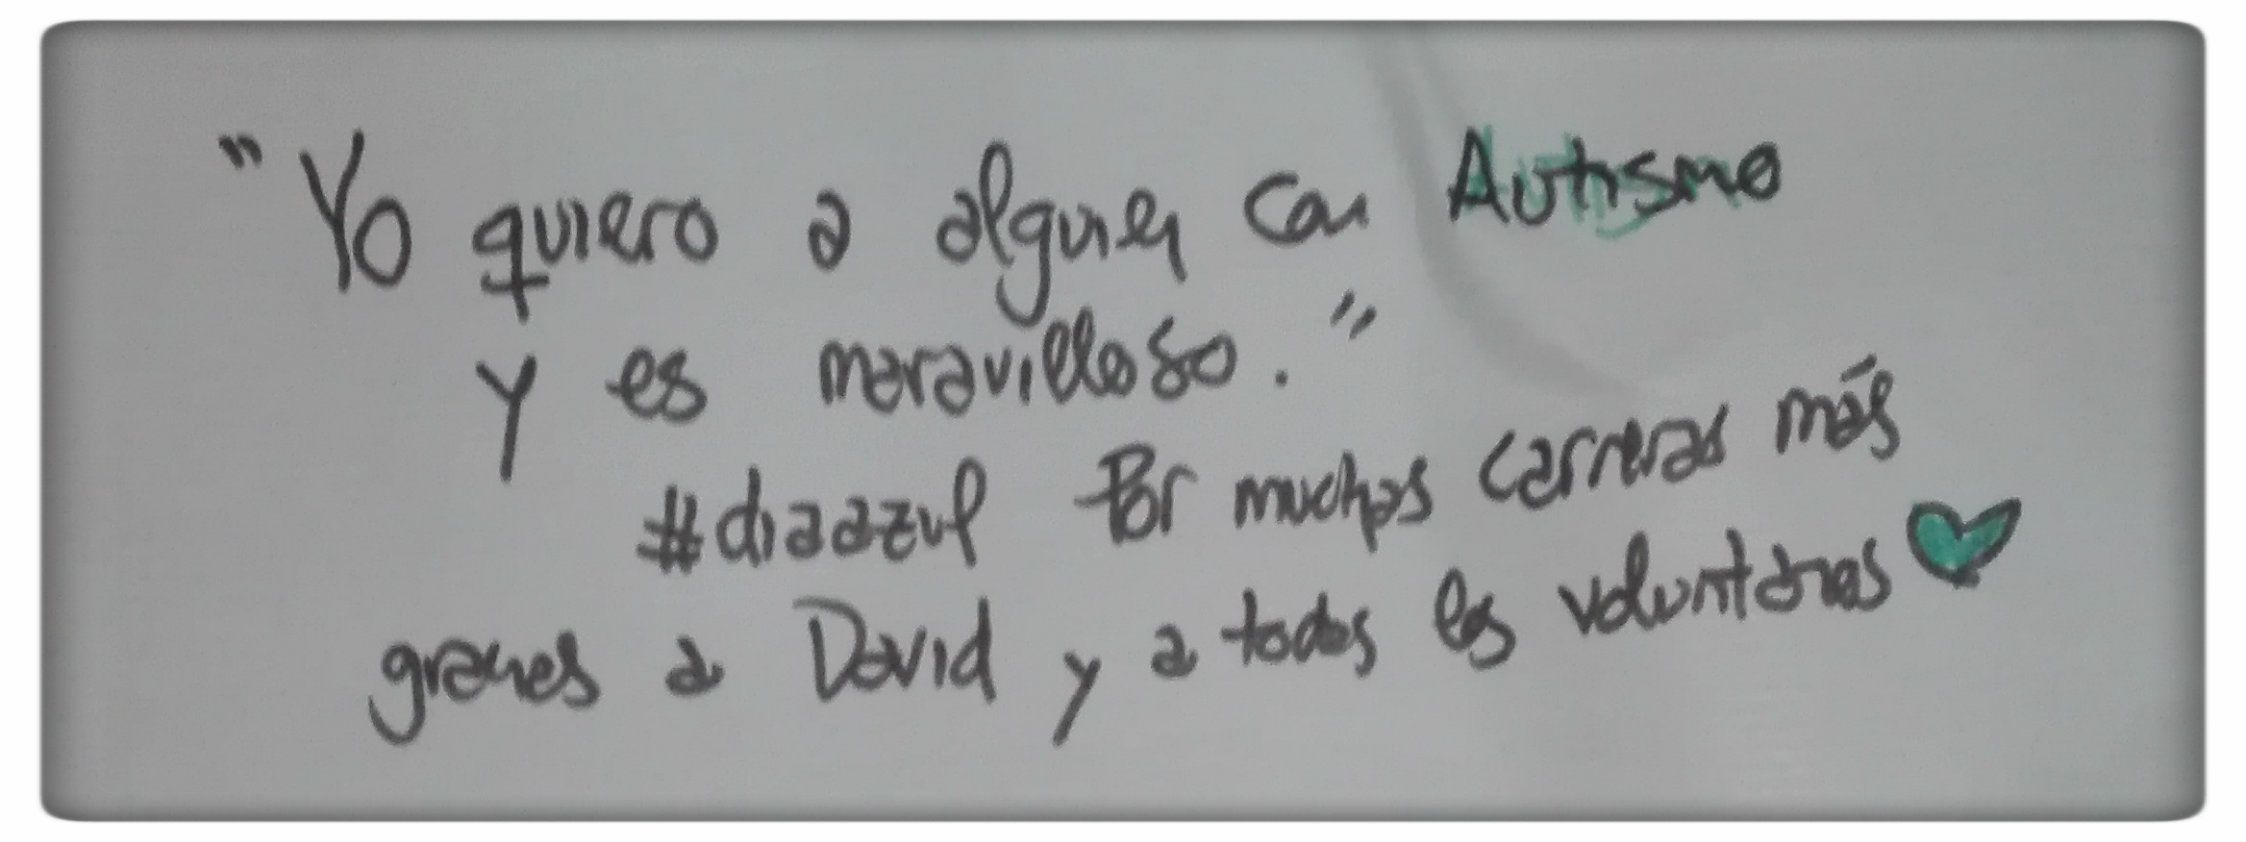 "Yo quiero a alguien con Autismo
y es maravilloso."
#diaazul Por muchas carreras más
gracias a David y a todos los voluntarios